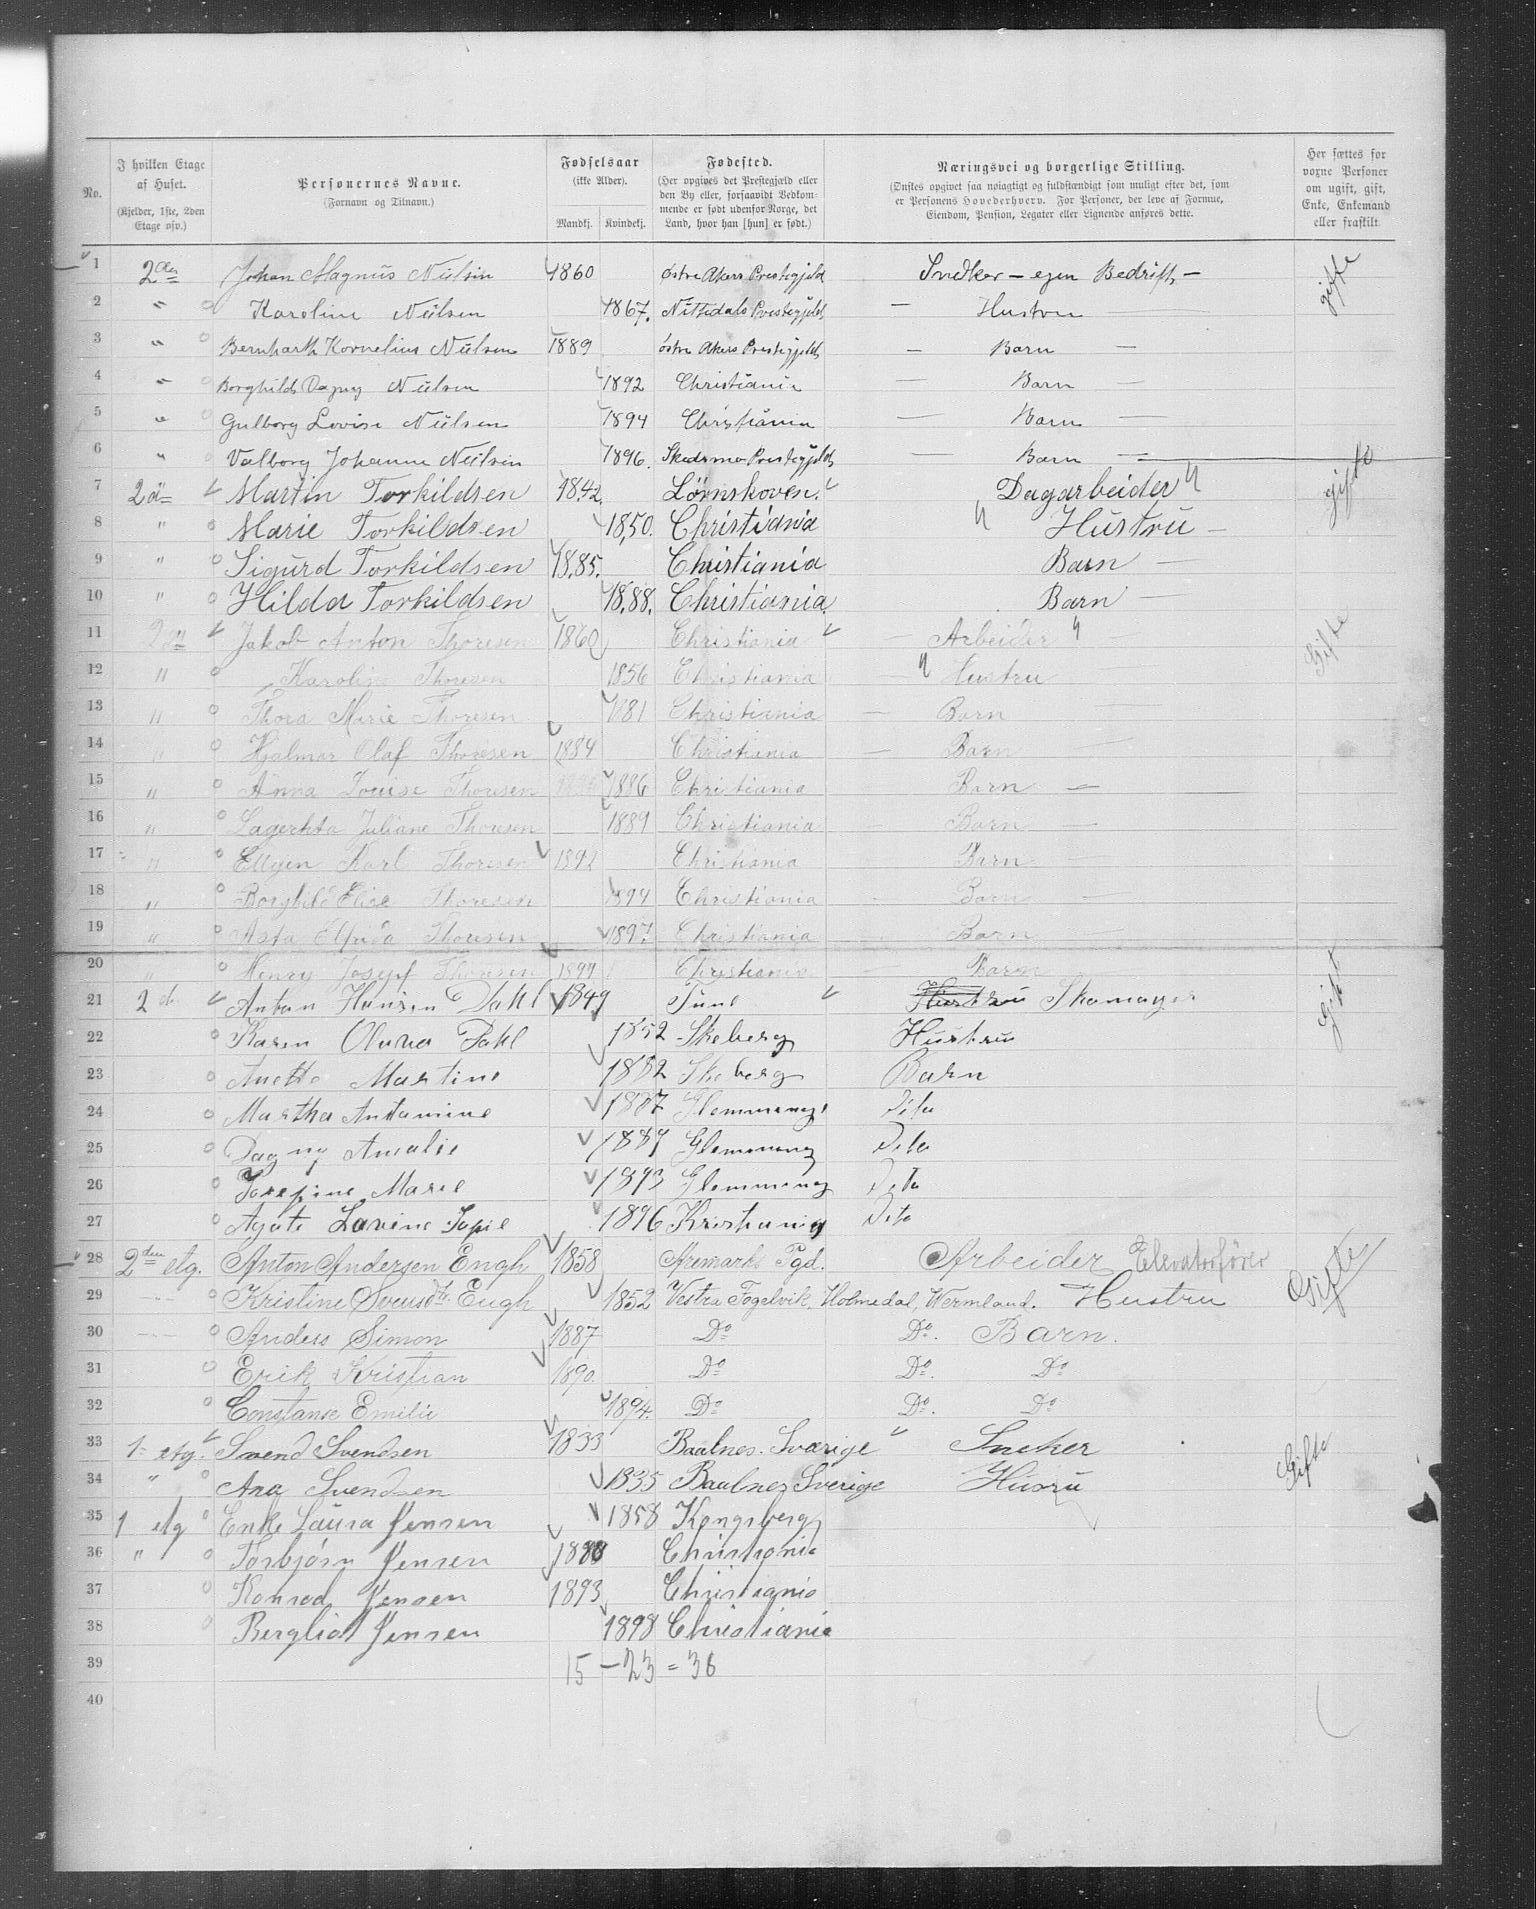 No. | I hvilken Etage af Huset. (Kjelder, 1ste, 2den Etage osv.) | Personernes Navne. (Fornavn og Tilnavn.) | Fødselsaar (ikke Alder). Mandkj. Kvindekj. | Fødested. (Her opgives det Prestegjæld eller den By eller, forsaavidt Vedkommende er født udenfor Norge, det Land, hvor han [hun] er født.) | Næringsvei og borgerlige Stilling. (Ønskes opgivet saa nøiagtigt og fuldstændigt som muligt efter det, som er Personens Hovederhverv. For Personer, der leve af Formue, Eiendom, Pension, Legater eller Lignende anføres dette. | Her sættes for voxne Personer om ugift, gift, Enke, Enkemand eller fraskilt.
1 2den Johan Magnus Nielsen 1860 østre Akers Prestegjeld Snedker – egen Bedrift – gifte
2 " Karoline Nielsen 1867. Nittedals Prestegjeld – Hustru –
3 " Bernharth Kornelius Nielsen 1889 østre Akers Prestegjeld – Barn –
4 " Borghild Dagny Nielsen 1892 Christiania – Barn –
5 " Gulborg Lovise Nielsen 1894 Christiania – Barn –
6 " Valborg Johanne Nielsen 1896. Skedsmo Prestegjeld – Barn –
7 2d Martin Torkildsen 1842 Lørnskoven. Dagarbeider gifte
8 " Marie Torkildsen 1850. Christiania Hustru –
9 " Sigurd Torkildsen 1885. Christiania Barn –
10 " Hilda Torkildsen 1888. Christiania. Barn –
11 2d Jakob Anton Thoresen 1860 Christiania – Arbeider Gifte
12 " Karoline Thoresen 1856 Christiania – Hustru
13 " Thora Marie Thoresen 1881 Christiania – Barn –
14 " Hjalmar Olaf Thoresen 1884 Christiania – Barn –
15 " Anna Louise Thoresen 1886 Christiania Barn –
16 " Lagerhta Juliane Thoresen 1889 Christiania – Barn –
17 " Eugen Karl Thoresen 1892 Christiania Barn –
18 " Borghild Elise Thoresen 1894 Christiania – Barn –
19 " Asta Elfrida Thoresen 1897 Christiania – Barn –
20 " Henry Josepf Thoresen 1899 Christiania – Barn
21 2d Anton Hansen Dahl 1849 Tune Hustru Skomager Gift
22 Karen Oluva Dahl 1852 Skeberg Hustru
23 Anette Martine 1882 Skeberg Barn
24 Martha Antomine 1887 Glemminge Dito
25 Dagny Amalie 1889 Glemming Dito
26 Josepine Marie 1893 Glemming Dito
27 Agate Lovine Sopie 1896 Kristiania Dito
28 2den etg. Anton Andersen Engh 1858 Aremarks Pgd. Arbeider Elevatorfører Gifte
29 " Kristine Svensdt. Engh 1852 Vestra Fogelvik, Holmedal, Wermland. Hustru
30 " Anders Simon 1887 Do Do. Barn.
31 Erik Kristian 1890. Do Do. Do
32 Constanse Emilie 1894. Do Do. Do
33 1 etg. Svend Svendsen 1833 Baalnes. Sværige Sneker Gifte
34 " Ana Svendsen 1835 Baalnes Sverige Husru
35 1 etg Enke Laura Jensen 1858 Kongsberg
36 " Torbjørn Jensen Christiania
37 Konrad Jensen 1893 Christiania
38 Bergliot Jensen 1898 Christiania
39 15 – 23 = 38
40